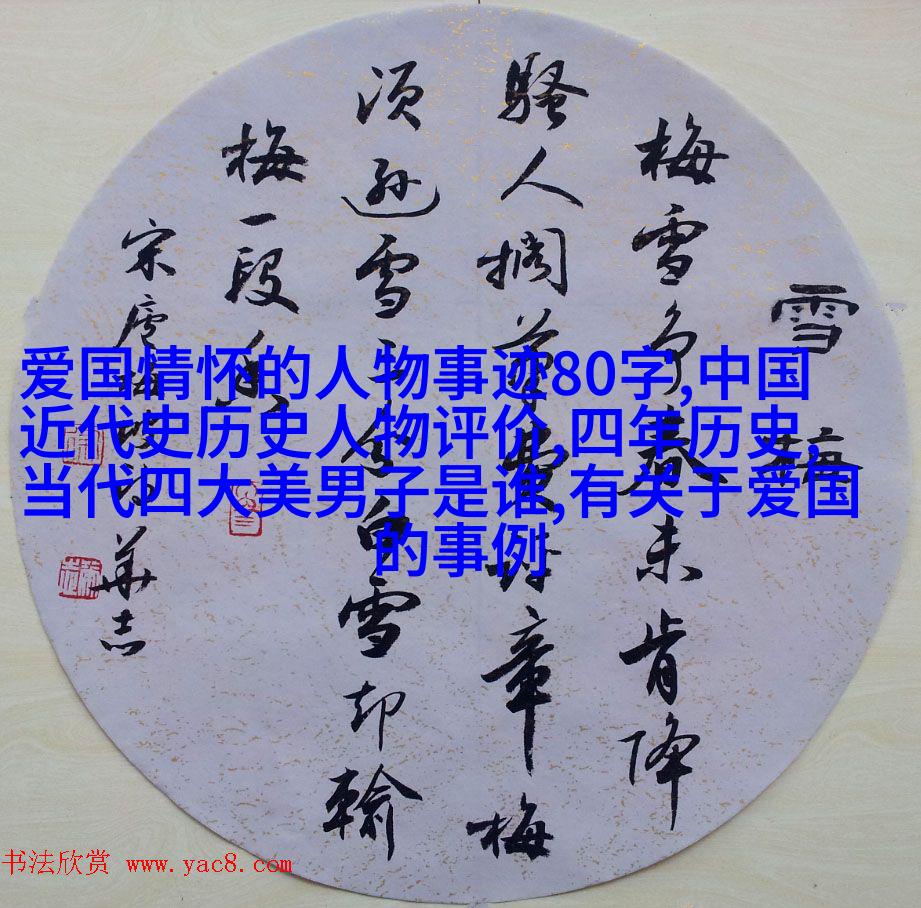 爱国情怀的人物事迹80字,中国
近代史历史人物评价,四年历史,
当代四大美男子是谁,有关于爱国
的事例
雪梅
梅雪争春未肯降
骚人搁筆費評章梅
须逊雪三分白雪却輸
梅一段香
宋卢梅坡诗華志
书法欣赏 www.yac8.com